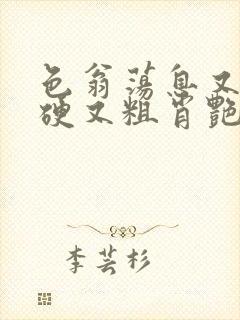 色翁荡息又
硬又粗肖艳
李芸杉